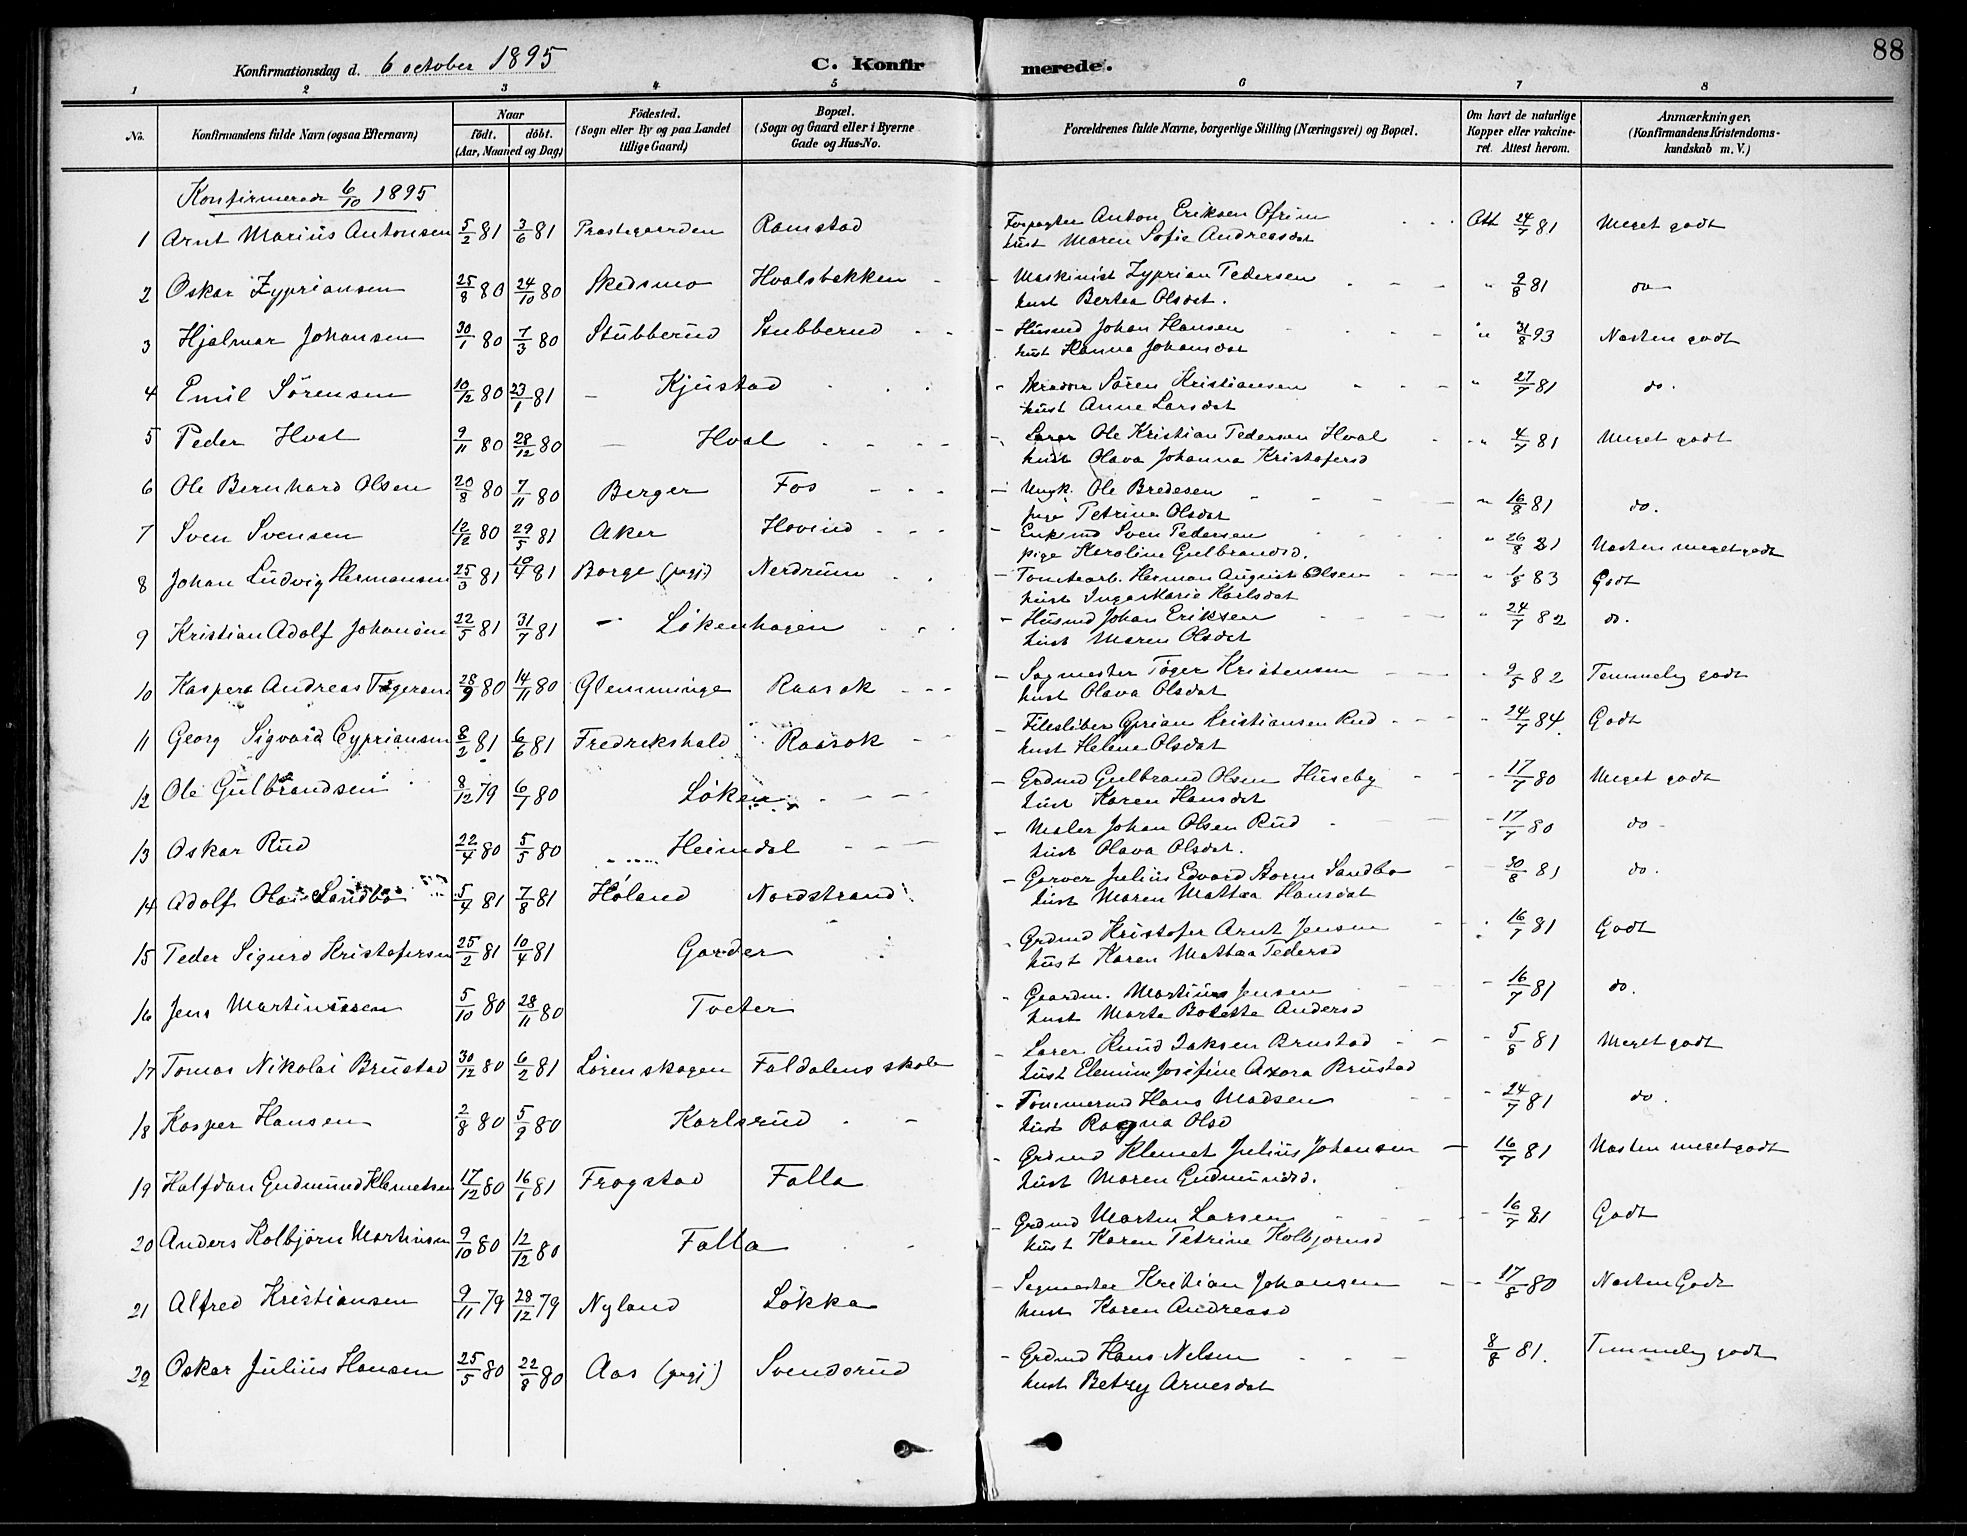 88
Konfirmationsdag d. 6 october 1895 C. Konfirmerede.
1 2 3 4 5 6 7 8
No. Konfirmandens fulde Navn (ogsaa Efternavn) Naar födt. döbt. (Aar, Maaned og Dag) Födested. (Sogn eller By og paa Landet tillige Gaard) Bopæl. (Sogn og Gaard eller i Byerne Gade og Hus-No. Forældrenes fulde Navne, borgerlige Stilling (Næringsvei) og Bopæl. Om havt de naturlige Kopper eller vakcineret. Attest herom. Anmærkninger. (Konfirmandens Kristendomskundskab m. V.)
Konfirmerede 6/10 1895
1 Arnt Marius Antonsen 5/2 81 3/6 81 Prestegaarden Ramstad Forpagter Anton Eriksen Ofrim Att 24/7 81 Meget godt
hust Maren Sofie Andreasdat
2 Oskar Zypriansen 25/8 80 24/10 80 Skedsmo Hvalsbekken Maskinist Zyprian Pedersen " 2/8 81 do
hust Bertea Olsdat.
3 Hjalmar Johansen 30/1 80 7/3 80 Stubberud Stubberud Husmd Johan Hansen " 31/8 93 Næsten godt
hust Hanna Johansdat
4 Emil Sörensen 10/12 80 23/1 81 Kjustad Skrædder Sören Kristiansen " 27/7 81 do.
hust Anne Larsdat
5 Peder Hval 9/11 80 28/12 80 Hval Lærer Ole Kristian Pedersen Hval " 4/7 81 Meget godt
hust Olava Johanna Kristofersd
6 Ole Bernhard Olsen 20/8 80 7/11 80 Berger Fos Ungk. Ole Bredesen " 16/8 81 do.
pige Petrine Olsdat
7 Sven Svensen 12/12 80 29/5 81 Aker Hovind Enkemd Sven Pedersen " 26/8 81 Næsten meget godt
pige Karoline Gulbrandsd.
8 Johan Ludvig Hermansen 25/3 81 18/4 81 Borge (prgj) Nerdrum Tomtearb. Herman August Olsen " 1/8 83 Godt
hust Inga Marie Karlsdat
9 Kristian Adolf Johansen 22/5 81 31/7 81 Lökenhagen Husmd Johan Eriksen " 24/7 82 do.
hust Maren Olsdat
10 Kaspara Andreas Tögersen 28/9 80 14/11 80 Glemminge Raasok Sagmester Töger Kristensen 2/5 82 Temmelig godt
hust Olava Olsdat
11 Georg Sigvard Cypriansen 8/2 81 6/6 81 Fredrikshald Raasok Filesliber Cyprian Kristiansen Rud 24/7 84 Godt
hust Helene Olsdat
12 Ole Gulbrandsen 8/12 79 6/7 80 Löken Grdmd Gulbrand Olsen Huseby 17/7 80 Meget godt
hust Karen Hansdat
13 Oskar Rud 22/4 80 5/5 80 Heimdal Maler Johan Olsen Rud 17/7 80 do
hust Olava Olsdat.
14 Adolf Olaus Sandbo 5/4 81 7/8 81 Höland Nordstrand Garver Julius Edvard Sandbo 30/8 81 do.
hust Maren Mathea Hansdat
15 Peder Sigurd Kristofersen 25/2 81 10/4 81 Garder Grdmd Kristofer Arnt Jensen 16/7 81 Godt
hust Karen Mathea Pedersd
16 Jens Martiniussen 5/10 80 28/11 80 Tveter Gaardm. Martinus Jensen 16/7 81 do.
hust Marte Bolette Andersd
17 Tomas Nikolai Brustad 30/12 80 6/2 81 Lörenskogen Faldalens skole Lærer Knud Isaksen Brustad 5/8 81 Meget godt
hust Elemine Josifine Axora Brustad
18 Kasper Hansen 2/8 80 5/9 80 Karlsrud Tömmermd Hans Madsen 24/7 81 do.
hust Ragna Olsd
19 Halfdan Gudmund Klemetsen 17/12 80 16/1 81 Frogstad Falla Grdmd Klemet Julius Johansen 16/7 81 Næsten meget godt
hust Maren Gudmundsd.
20 Anders Kolbjörn Martinsen 9/10 80 12/12 80 Falla Grdmd Martin Larsen 16/7 81 Godt
hust Karen Petrine Kolbjörnsd
21 Alfred Kristiansen 9/11 79 28/12 79 Nyland Lökka Sagmester Kristian Johansen 17/8 80 Næsten Godt
hust Karen Andreasd
22 Oskar Julius Hansen 25/5 80 22/8 80 Aas (prgj) Svendsrud Grdmd Hans Nelsen 8/8 81. Temmelig godt
hust Betzy Arnesdat